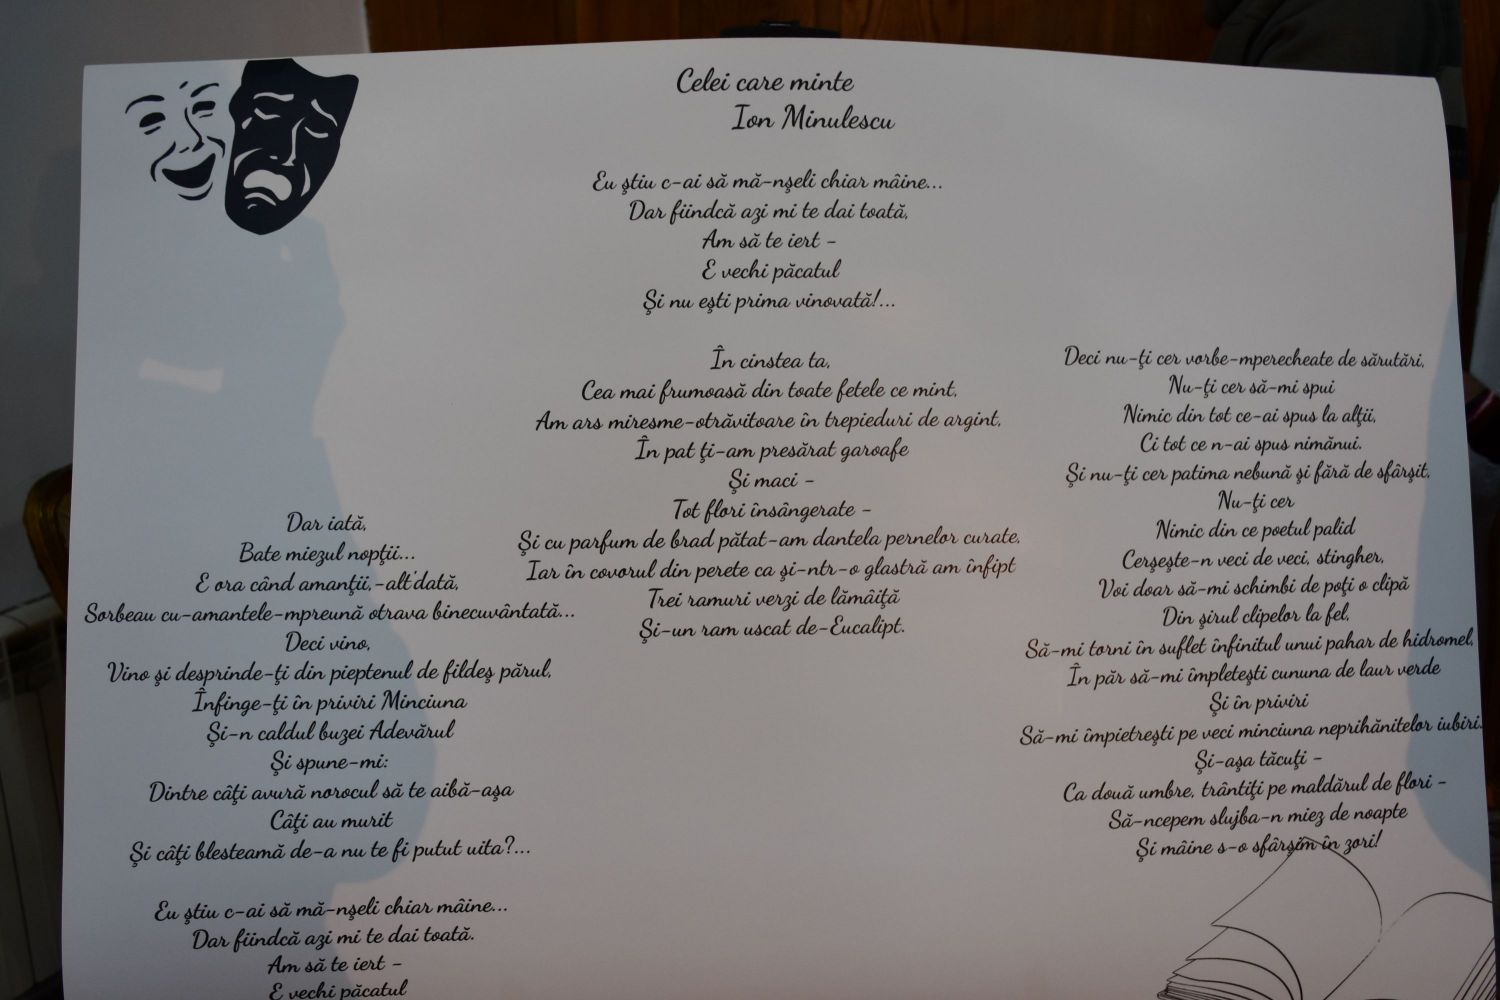 Celei care minte
Ion Minulescu
Eu ştiu c-ai să mă-nşeli chiar mâine...
Dar fiindcă azi mi te dai toată,
Am să te iert -
E vechi păcatul
Şi nu eşti prima vinovată!...
În cinstea ta,
Cea mai frumoasă din toate fetele ce mint,
Am ars miresme-otrăvitoare în trepieduri de argint,
În pat ţi-am presărat garoafe
Şi maci -
Tot flori însângerate -
Şi cu parfum de brad pătat-am dantela pernelor curate,
Iar în covorul din perete ca şi-ntr-o glastră am înfipt
Trei ramuri verzi de lămâiţă
Şi-un ram uscat de-Eucalipt.
Dar iată,
Bate miezul nopţii...
E ora când amanţii,-alt'dată,
Sorbeau cu-amantele-mpreună otrava binecuvântată...
Deci vino,
Vino şi desprinde-ţi din pieptenul de fildeş părul,
Înfinge-ţi în priviri Minciuna
Şi-n caldul buzei Adevărul
Şi spune-mi:
Dintre câţi avură norocul să te aibă-aşa
Câţi au murit
Şi câţi blesteamă de-a nu te fi putut uita?...
Eu ştiu c-ai să mă-nşeli chiar mâine...
Dar fiindcă azi mi te dai toată.
Am să te iert -
E vechi păcatul
Deci nu-ţi cer vorbe-mperecheate de sărutări,
Nu-ţi cer să-mi spui
Nimic din tot ce-ai spus la alţii,
Ci tot ce n-ai spus nimănui.
Şi nu-ţi cer patima nebună şi fără de sfârşit,
Nu-ţi cer
Nimic din ce poetul palid
Cerşeşte-n veci de veci, stingher,
Voi doar să-mi schimbi de poţi o clipă
Din şirul clipelor la fel,
Să-mi torni în suflet infinitul unui pahar de hidromel,
În păr să-mi împleteşti cununa de laur verde
Şi în priviri
Să-mi împietreşti pe veci minciuna neprihănitelor iubiri.
Şi-aşa tăcuţi -
Ca două umbre, trântiţi pe maldărul de flori -
Să-ncepem slujba-n miez de noapte
Şi mâine s-o sfârşim în zori!